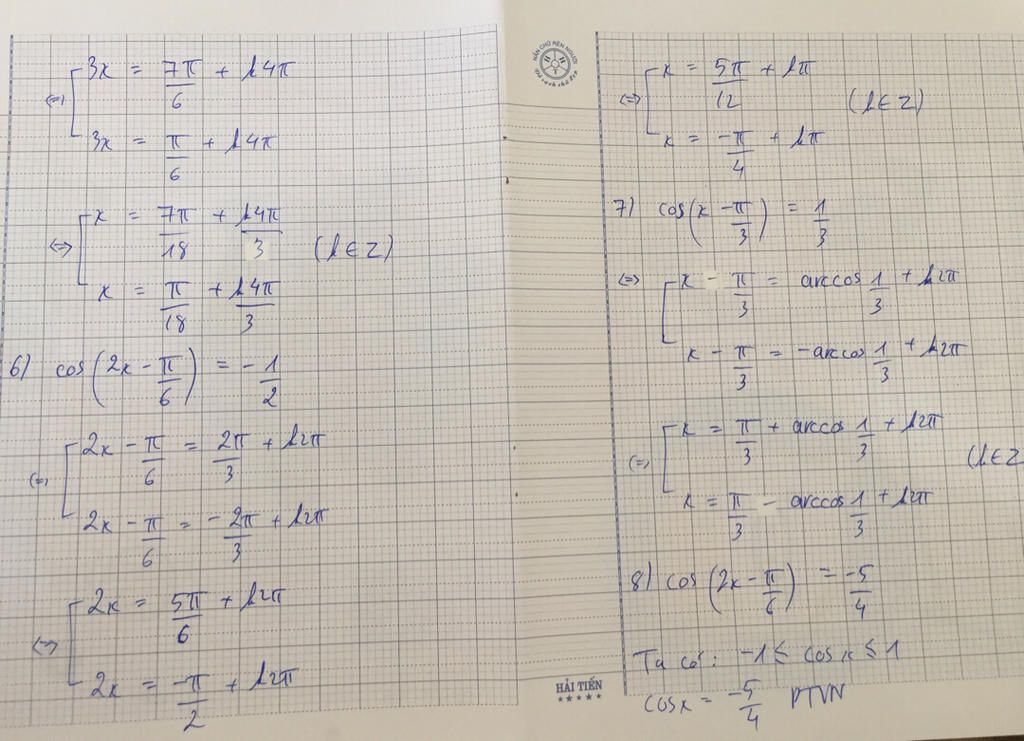 ⇔ [ 3x = 7π/6 + k4π
3x = π/6 + k4π
⇔ [ x = 7π/18 + k4π/3 (k∈Z)
x = π/18 + k4π/3
6) cos(2x - π/6) = -1/2
⇔ [ 2x - π/6 = 2π/3 + k2π
2x - π/6 = -2π/3 + k2π
⇔ [ 2x = 5π/6 + k2π
2x = -π/2 + k2π
NẮN CHỮ RÈN NGƯỜI
HẢI TIẾN
⇔ [ x = 5π/12 + kπ (k∈Z)
x = -π/4 + kπ
7) cos(x - π/3) = 1/3
⇔ [ x - π/3 = arccos 1/3 + k2π
x - π/3 = -arccos 1/3 + k2π
⇔ [ x = π/3 + arccos 1/3 + k2π (k∈Z
x = π/3 - arccos 1/3 + k2π
8) cos(2x - π/6) = -5/4
Ta có: -1 ≤ cosx ≤ 1
cosx = -5/4 PTVN